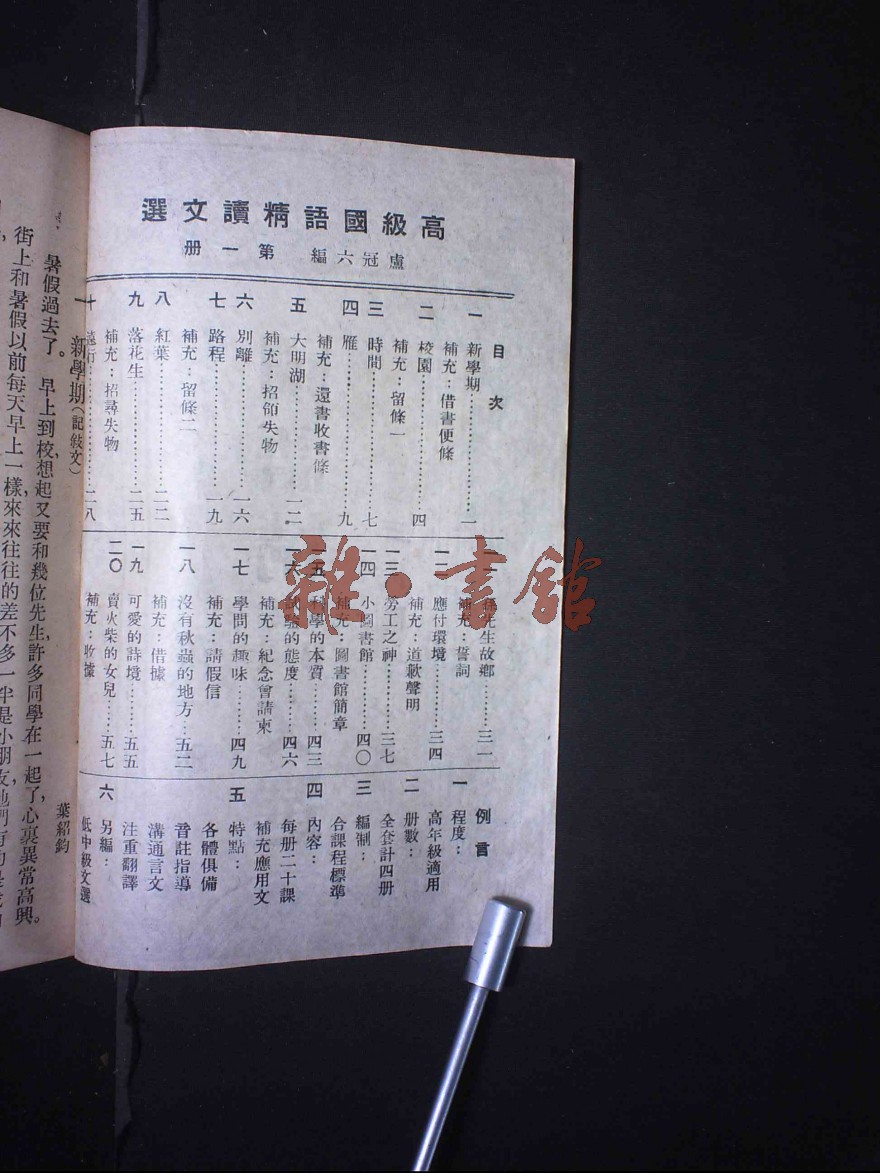 高級國語精讀文選
盧冠六編 第一册
目次
一 新學期……一
補充：借書便條
二 校園……四
補充：留條一
三 時間……七
四 雁……九
補充：還書收書條
五 大明湖……一二
補充：招領失物
六 別離……一六
七 路程……一九
補充：留條二
八 紅葉……二二
九 落花生……二五
補充：招尋失物
十 遠行……二八
先生故鄉……三一
補充：誓詞
一二 應付環境……三四
補充：道歉聲明
一三 勞工之神……三七
一四 小圖書館……四〇
補充：圖書館簡章
一五 科學的本質……四三
一六 試驗的態度……四六
補充：紀念會請柬
一七 學問的趣味……四九
補充：請假信
一八 沒有秋蟲的地方…五二
補充：借據
一九 可愛的詩境……五五
二〇 賣火柴的女兒…五七
補充：收據
例言
一 程度：
高年級適用
二 册數：
全套計四册
三 編制：
合課程標準
四 內容：
每册二十課
補充應用文
五 特點：
各體俱備
音註指導
溝通言文
注重翻譯
六 另編：
低中級文選
一 新學期（記敍文）
葉紹鈞
暑假過去了。早上到校，想起又要和幾位先生許多同學在一起了，心裏異常高興。
街上和暑假以前每天早上一樣，來來往往的差不多一半是小朋友，他們有的是
雜·書館